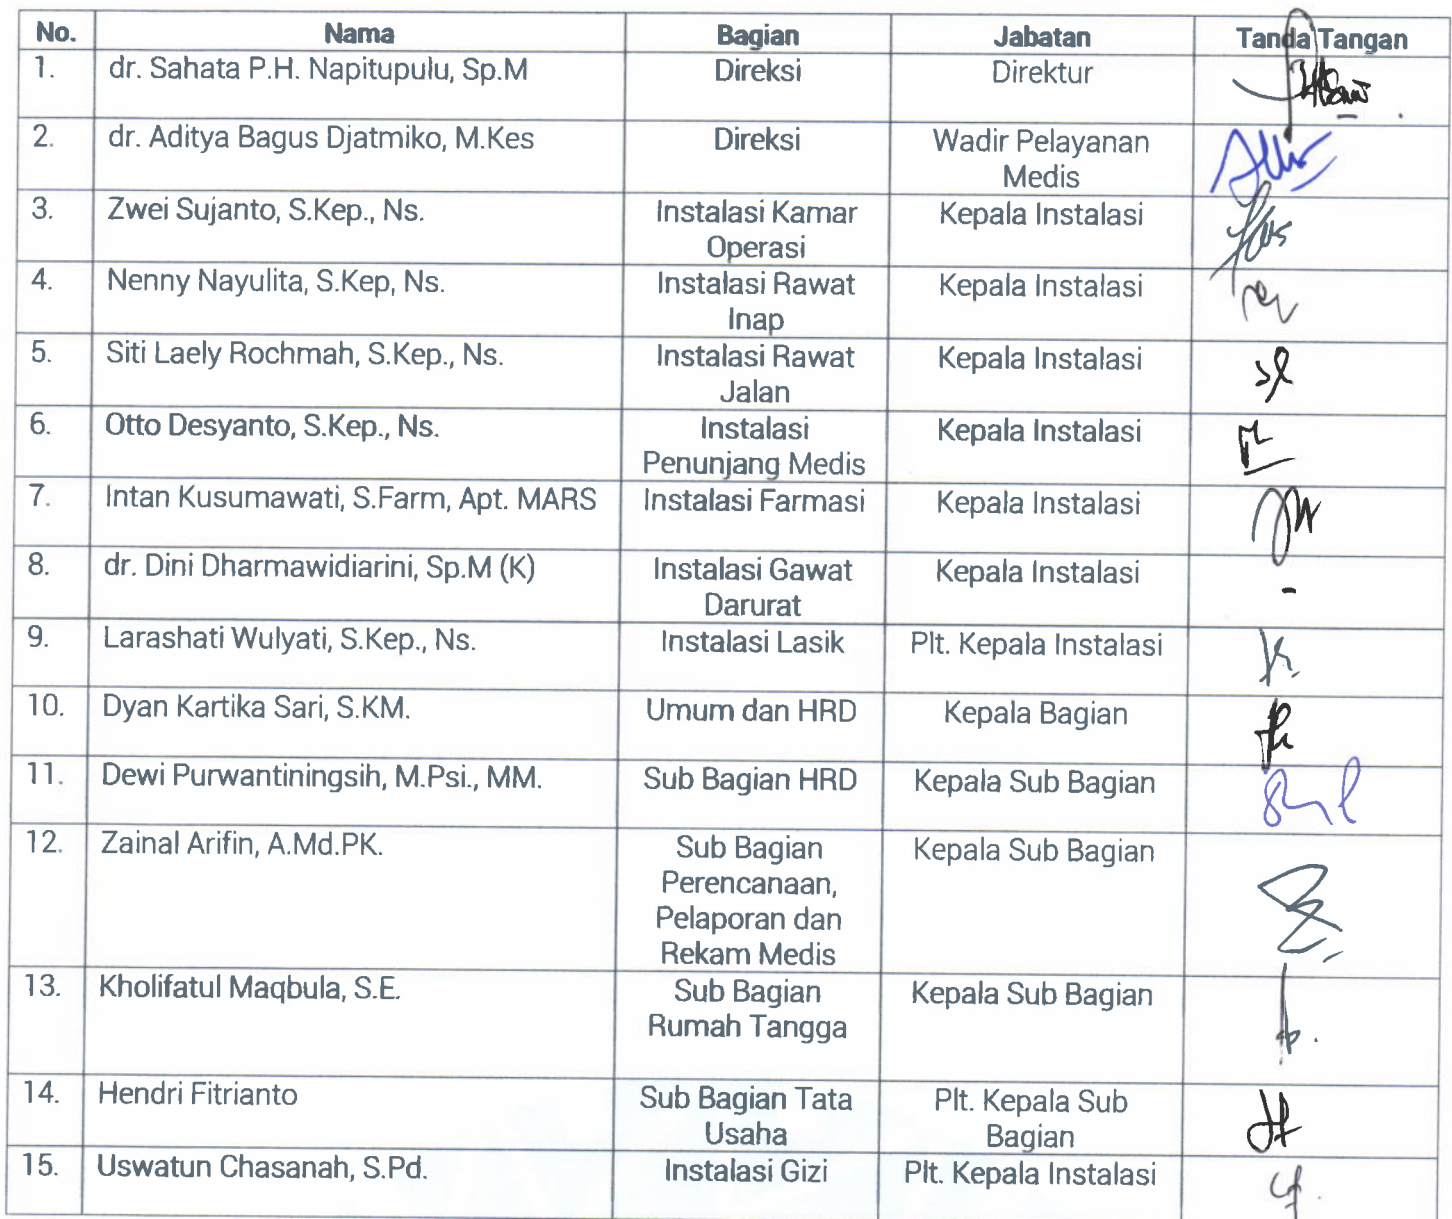 No. Nama Bagian Jabatan Tanda Tangan
1. dr. Sahata P.H. Napitupulu, Sp.M Direksi Direktur
2. dr. Aditya Bagus Djatmiko, M.Kes Direksi Wadir Pelayanan
Medis
3. Zwei Sujanto, S.Kep., Ns. Instalasi Kamar Kepala Instalasi
Operasi
4. Nenny Nayulita, S.Kep, Ns. Instalasi Rawat Kepala Instalasi
Inap
5. Siti Laely Rochmah, S.Kep., Ns. Instalasi Rawat Kepala Instalasi
Jalan
6. Otto Desyanto, S.Kep., Ns. Instalasi Kepala Instalasi
Penunjang Medis
7. Intan Kusumawati, S.Farm, Apt. MARS Instalasi Farmasi Kepala Instalasi
8. dr. Dini Dharmawidiarini, Sp.M (K) Instalasi Gawat Kepala Instalasi -
Darurat
9. Larashati Wulyati, S.Kep., Ns. Instalasi Lasik Plt. Kepala Instalasi
10. Dyan Kartika Sari, S.KM. Umum dan HRD Kepala Bagian
11. Dewi Purwantiningsih, M.Psi., MM. Sub Bagian HRD Kepala Sub Bagian
12. Zainal Arifin, A.Md.PK. Sub Bagian Kepala Sub Bagian
Perencanaan,
Pelaporan dan
Rekam Medis
13. Kholifatul Maqbula, S.E. Sub Bagian Kepala Sub Bagian
Rumah Tangga
14. Hendri Fitrianto Sub Bagian Tata Plt. Kepala Sub
Usaha Bagian
15. Uswatun Chasanah, S.Pd. Instalasi Gizi Plt. Kepala Instalasi